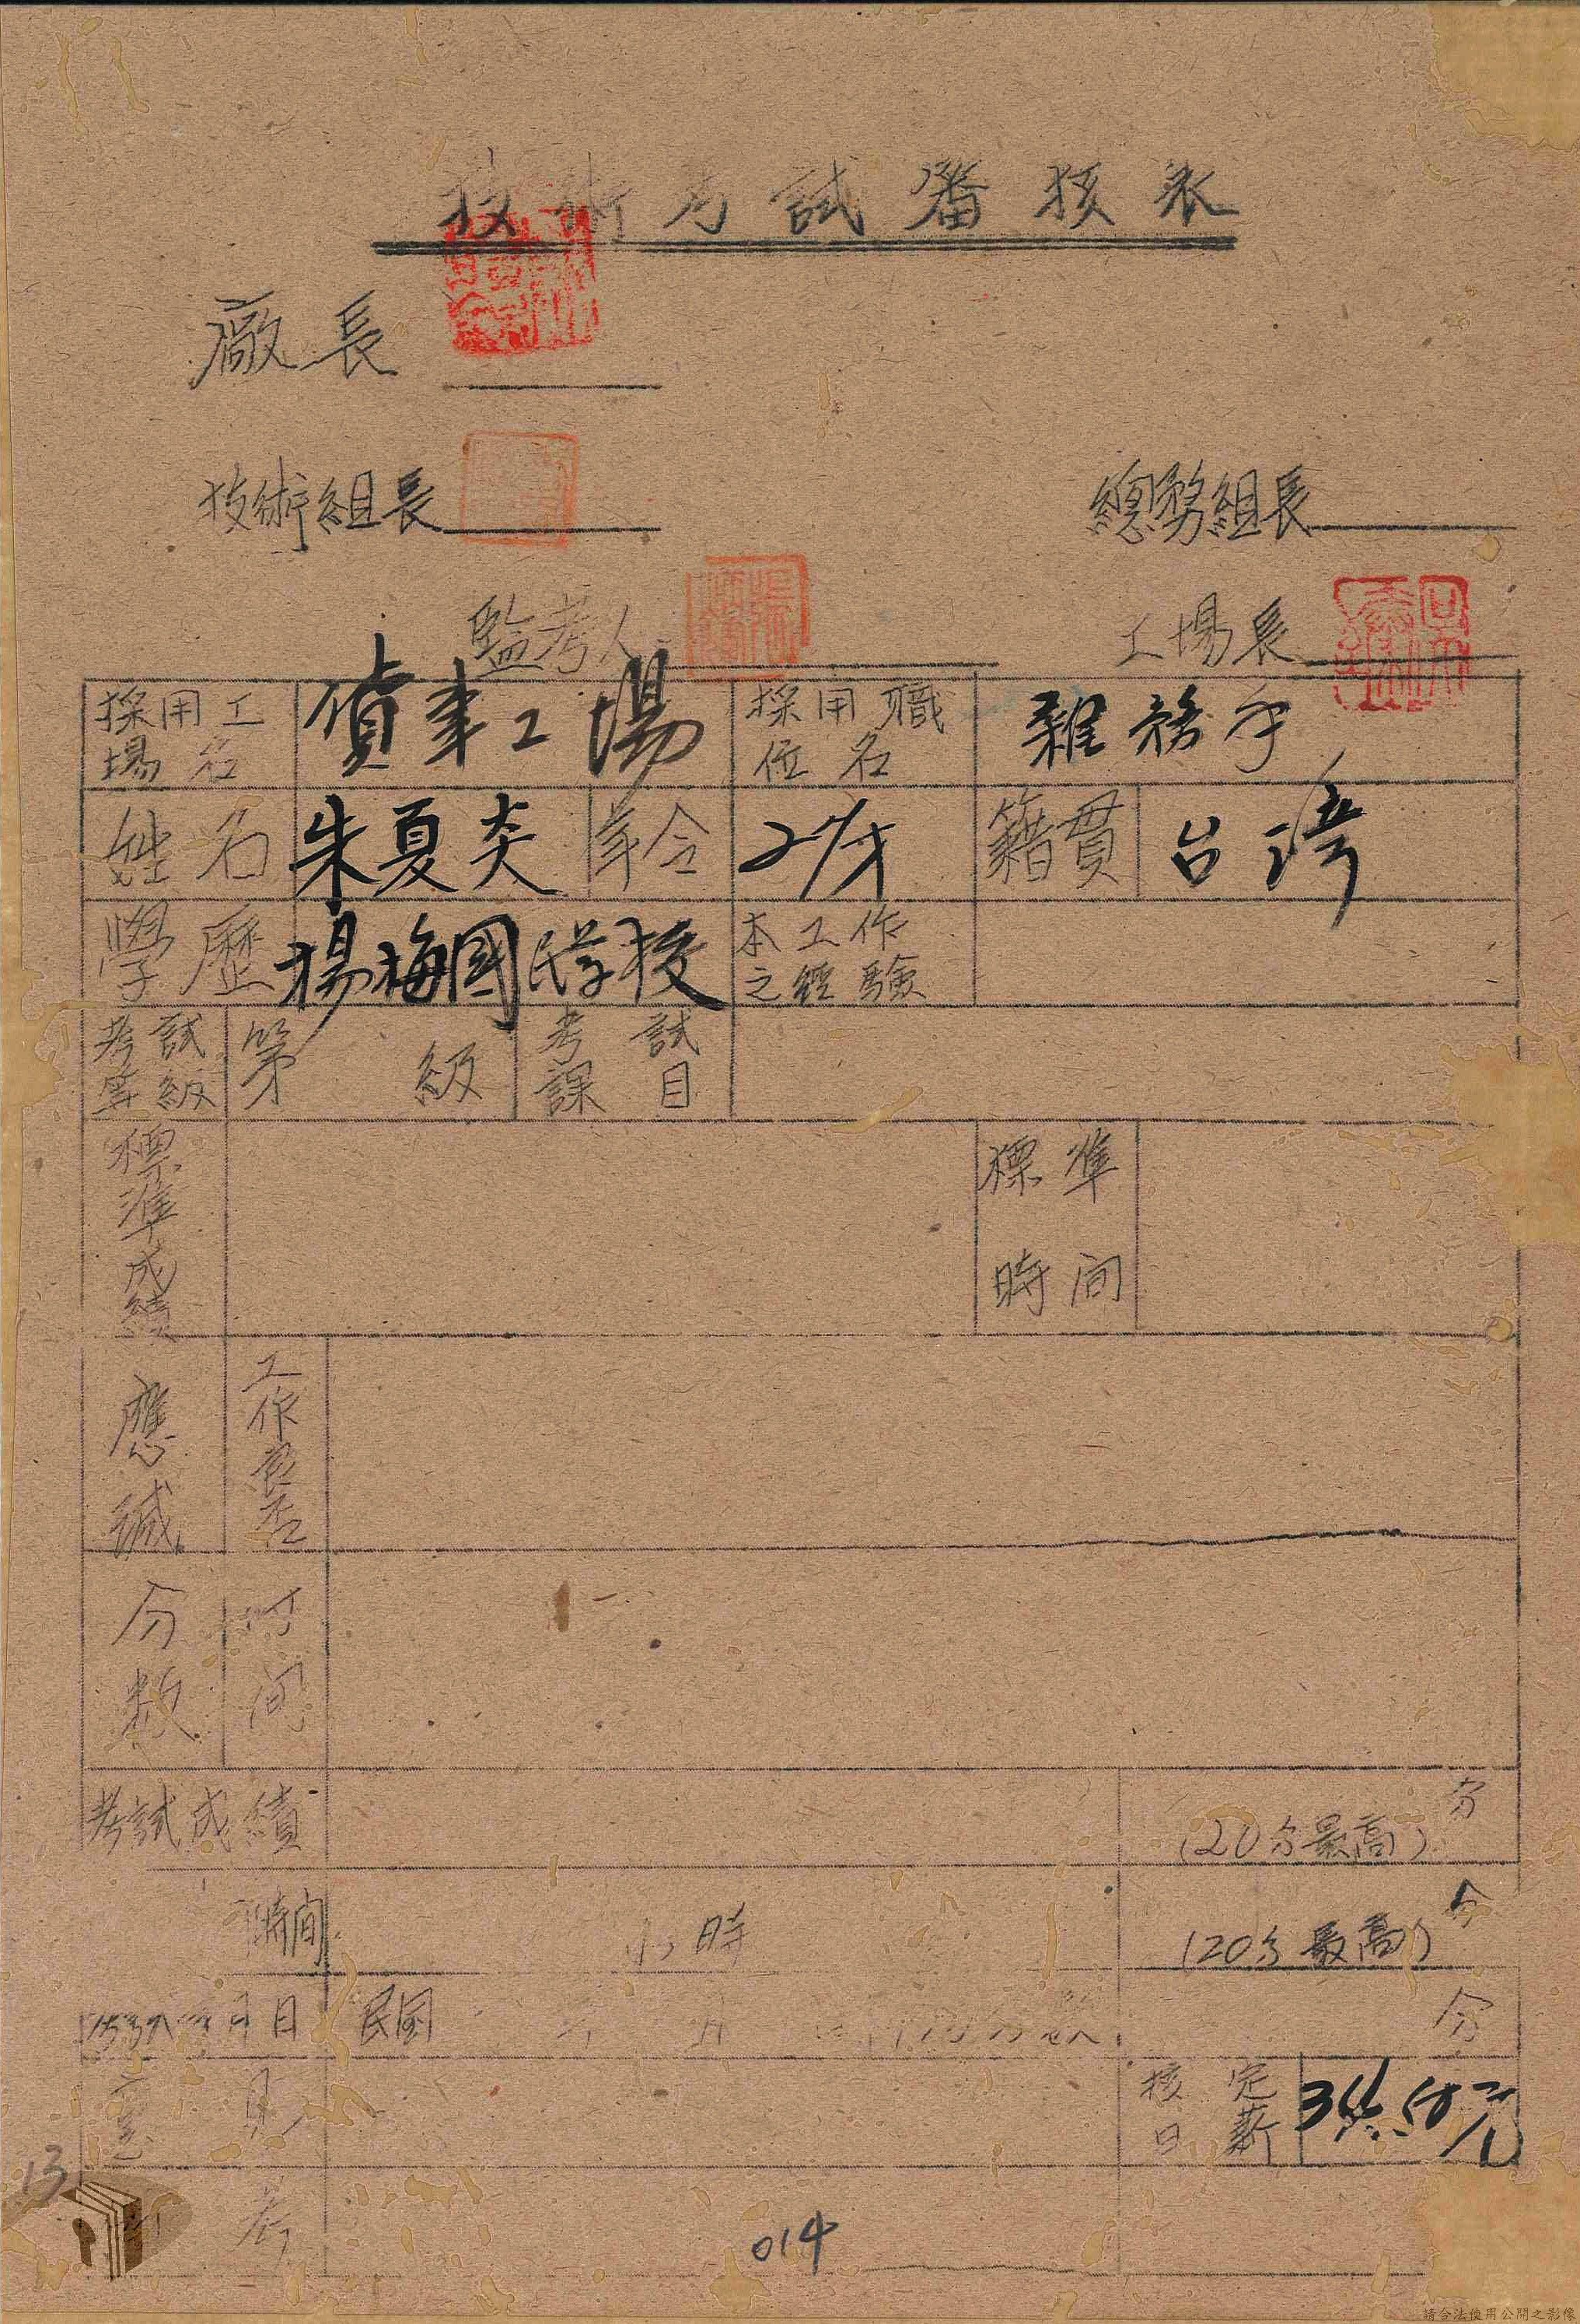 技術考試審核表
廠長
技術組長 總務組長
監考人 工場長
採用工場名 貨車工場 採用職位名 雜務手
姓名 朱夏炎 年令 27才 籍貫 台湾
學歷 楊梅國民学校 本工作之經驗
考試等級 第 級 考試課目
標準成績 標準時间
應減分数 工作良否
时间
考試成績 分
(20分最高)
時间 小時 分
(20分最高)
月日 民国 年 月 分
意見 核定日薪 元
考
13
014
請合法使用公開之影像